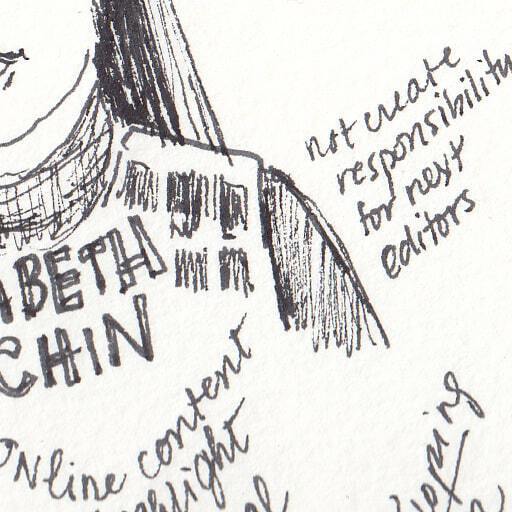 not create
responsibility
for next
editors
ABETH
CHIN
ONline content